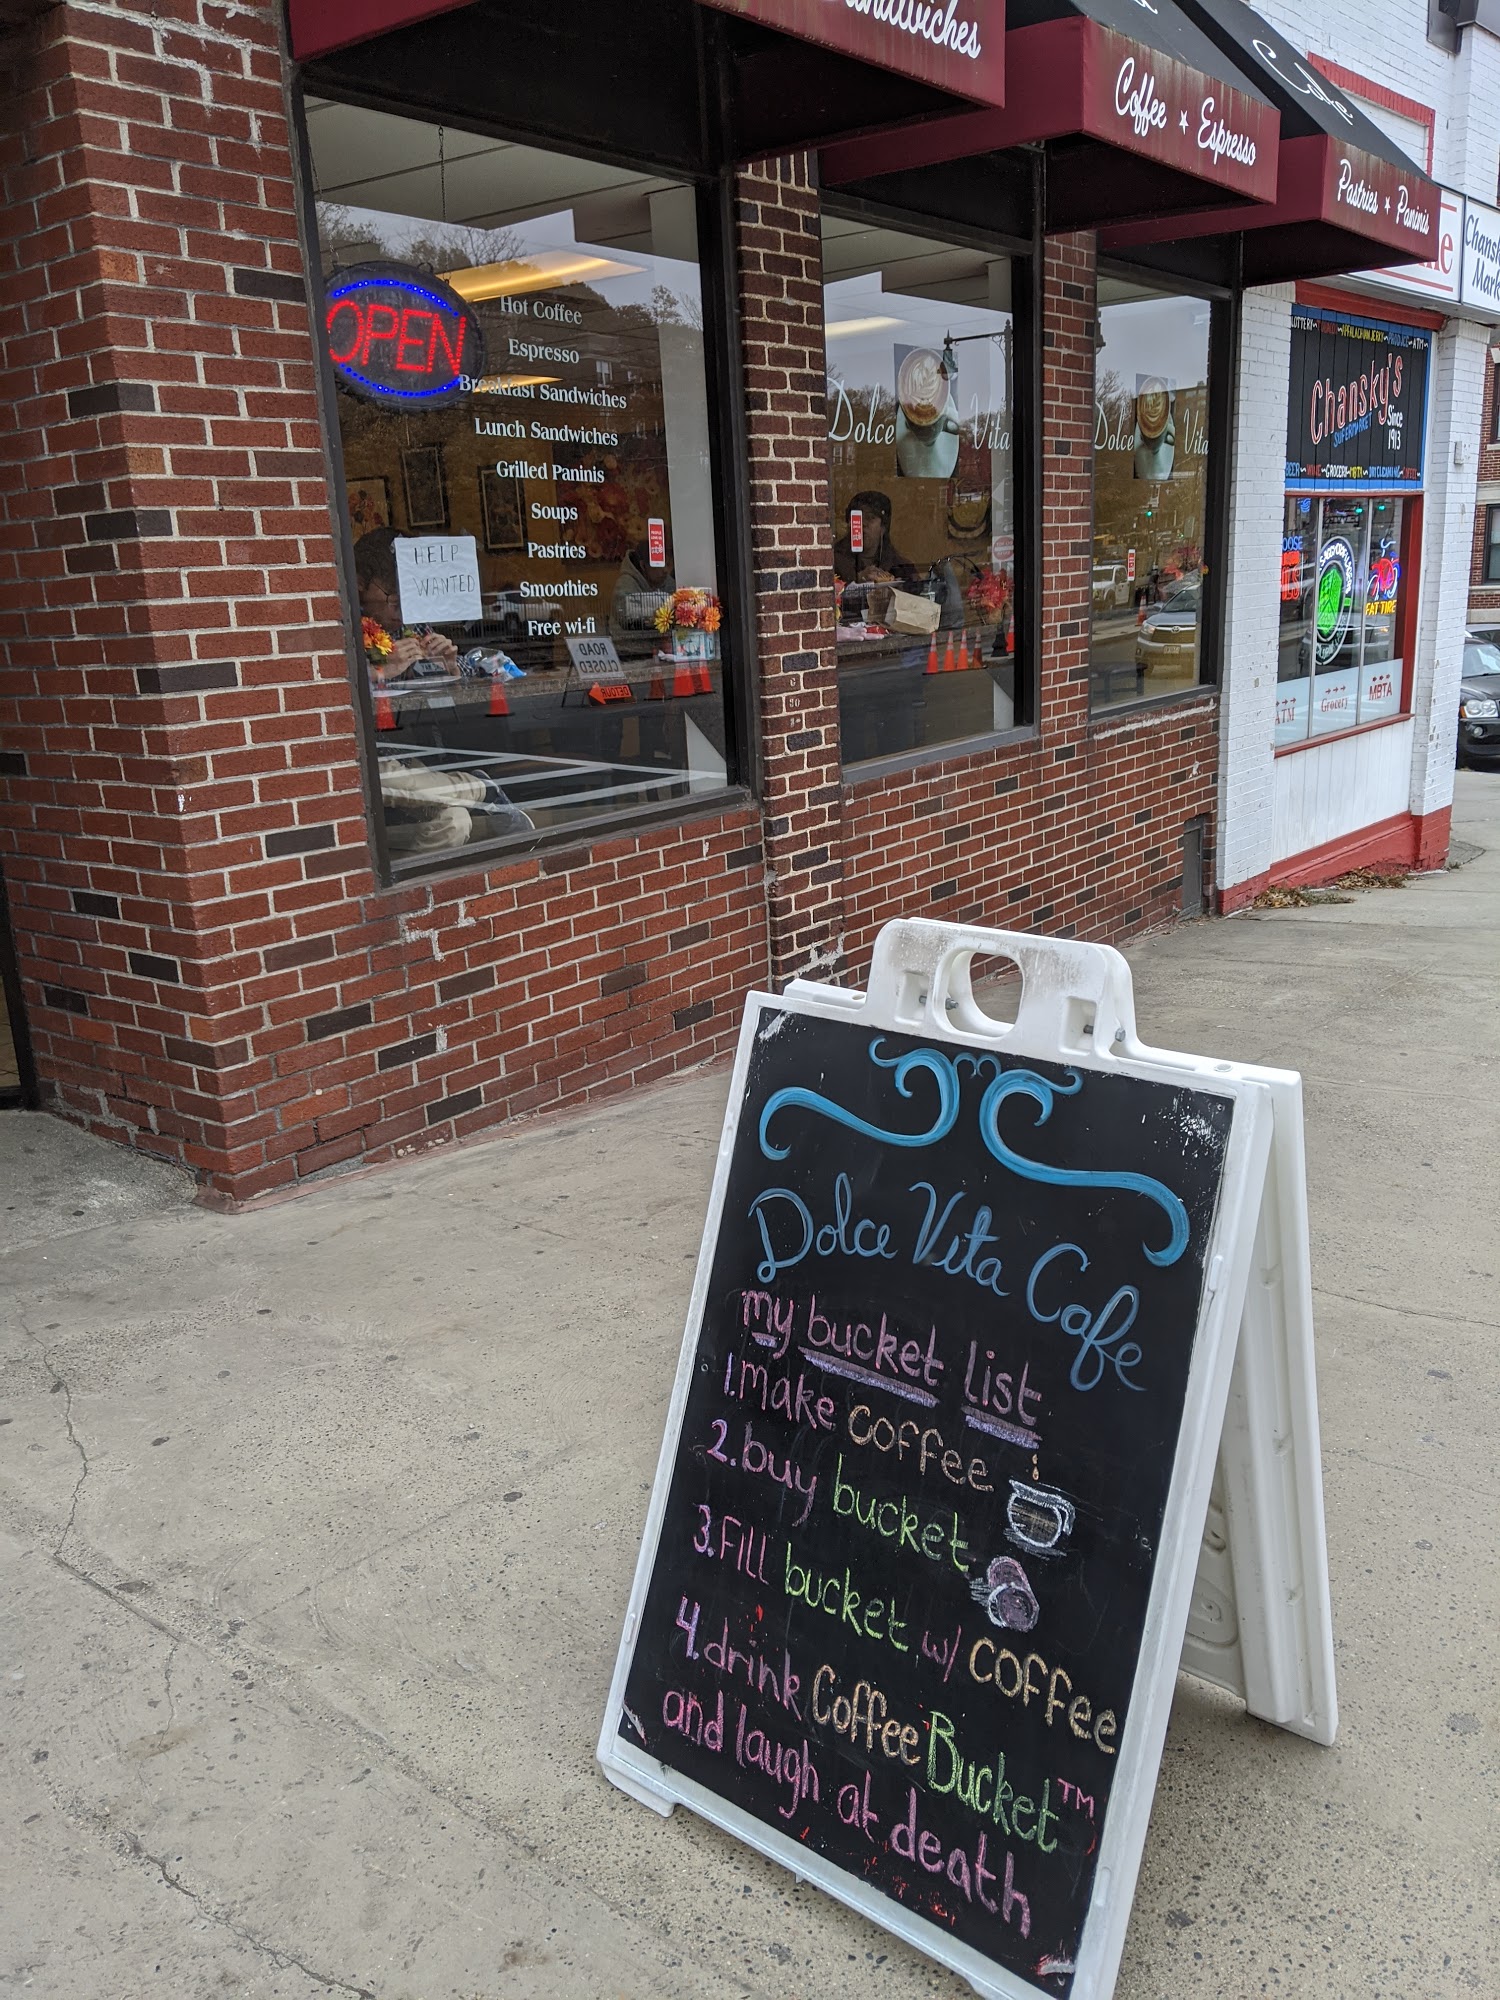 Sandwiches
Coffee ★ Espresso
Cafe
Pastries ★ Paninis
OPEN
Hot Coffee
Espresso
Breakfast Sandwiches
Lunch Sandwiches
Grilled Paninis
Soups
Pastries
Smoothies
Free wi-fi
HELP
WANTED
ROAD
CLOSED
DETOUR
Dolce Vita
Dolce Vita
Chansky's
SUPERMARKET
Since
1913
GROCERY
FAT TIRE
ATM
Grocery
MBTA
Dolce Vita Cafe
my bucket list
1. make coffee
2. buy bucket
3. Fill bucket w/ coffee
4. drink Coffee Bucket™
and laugh at death